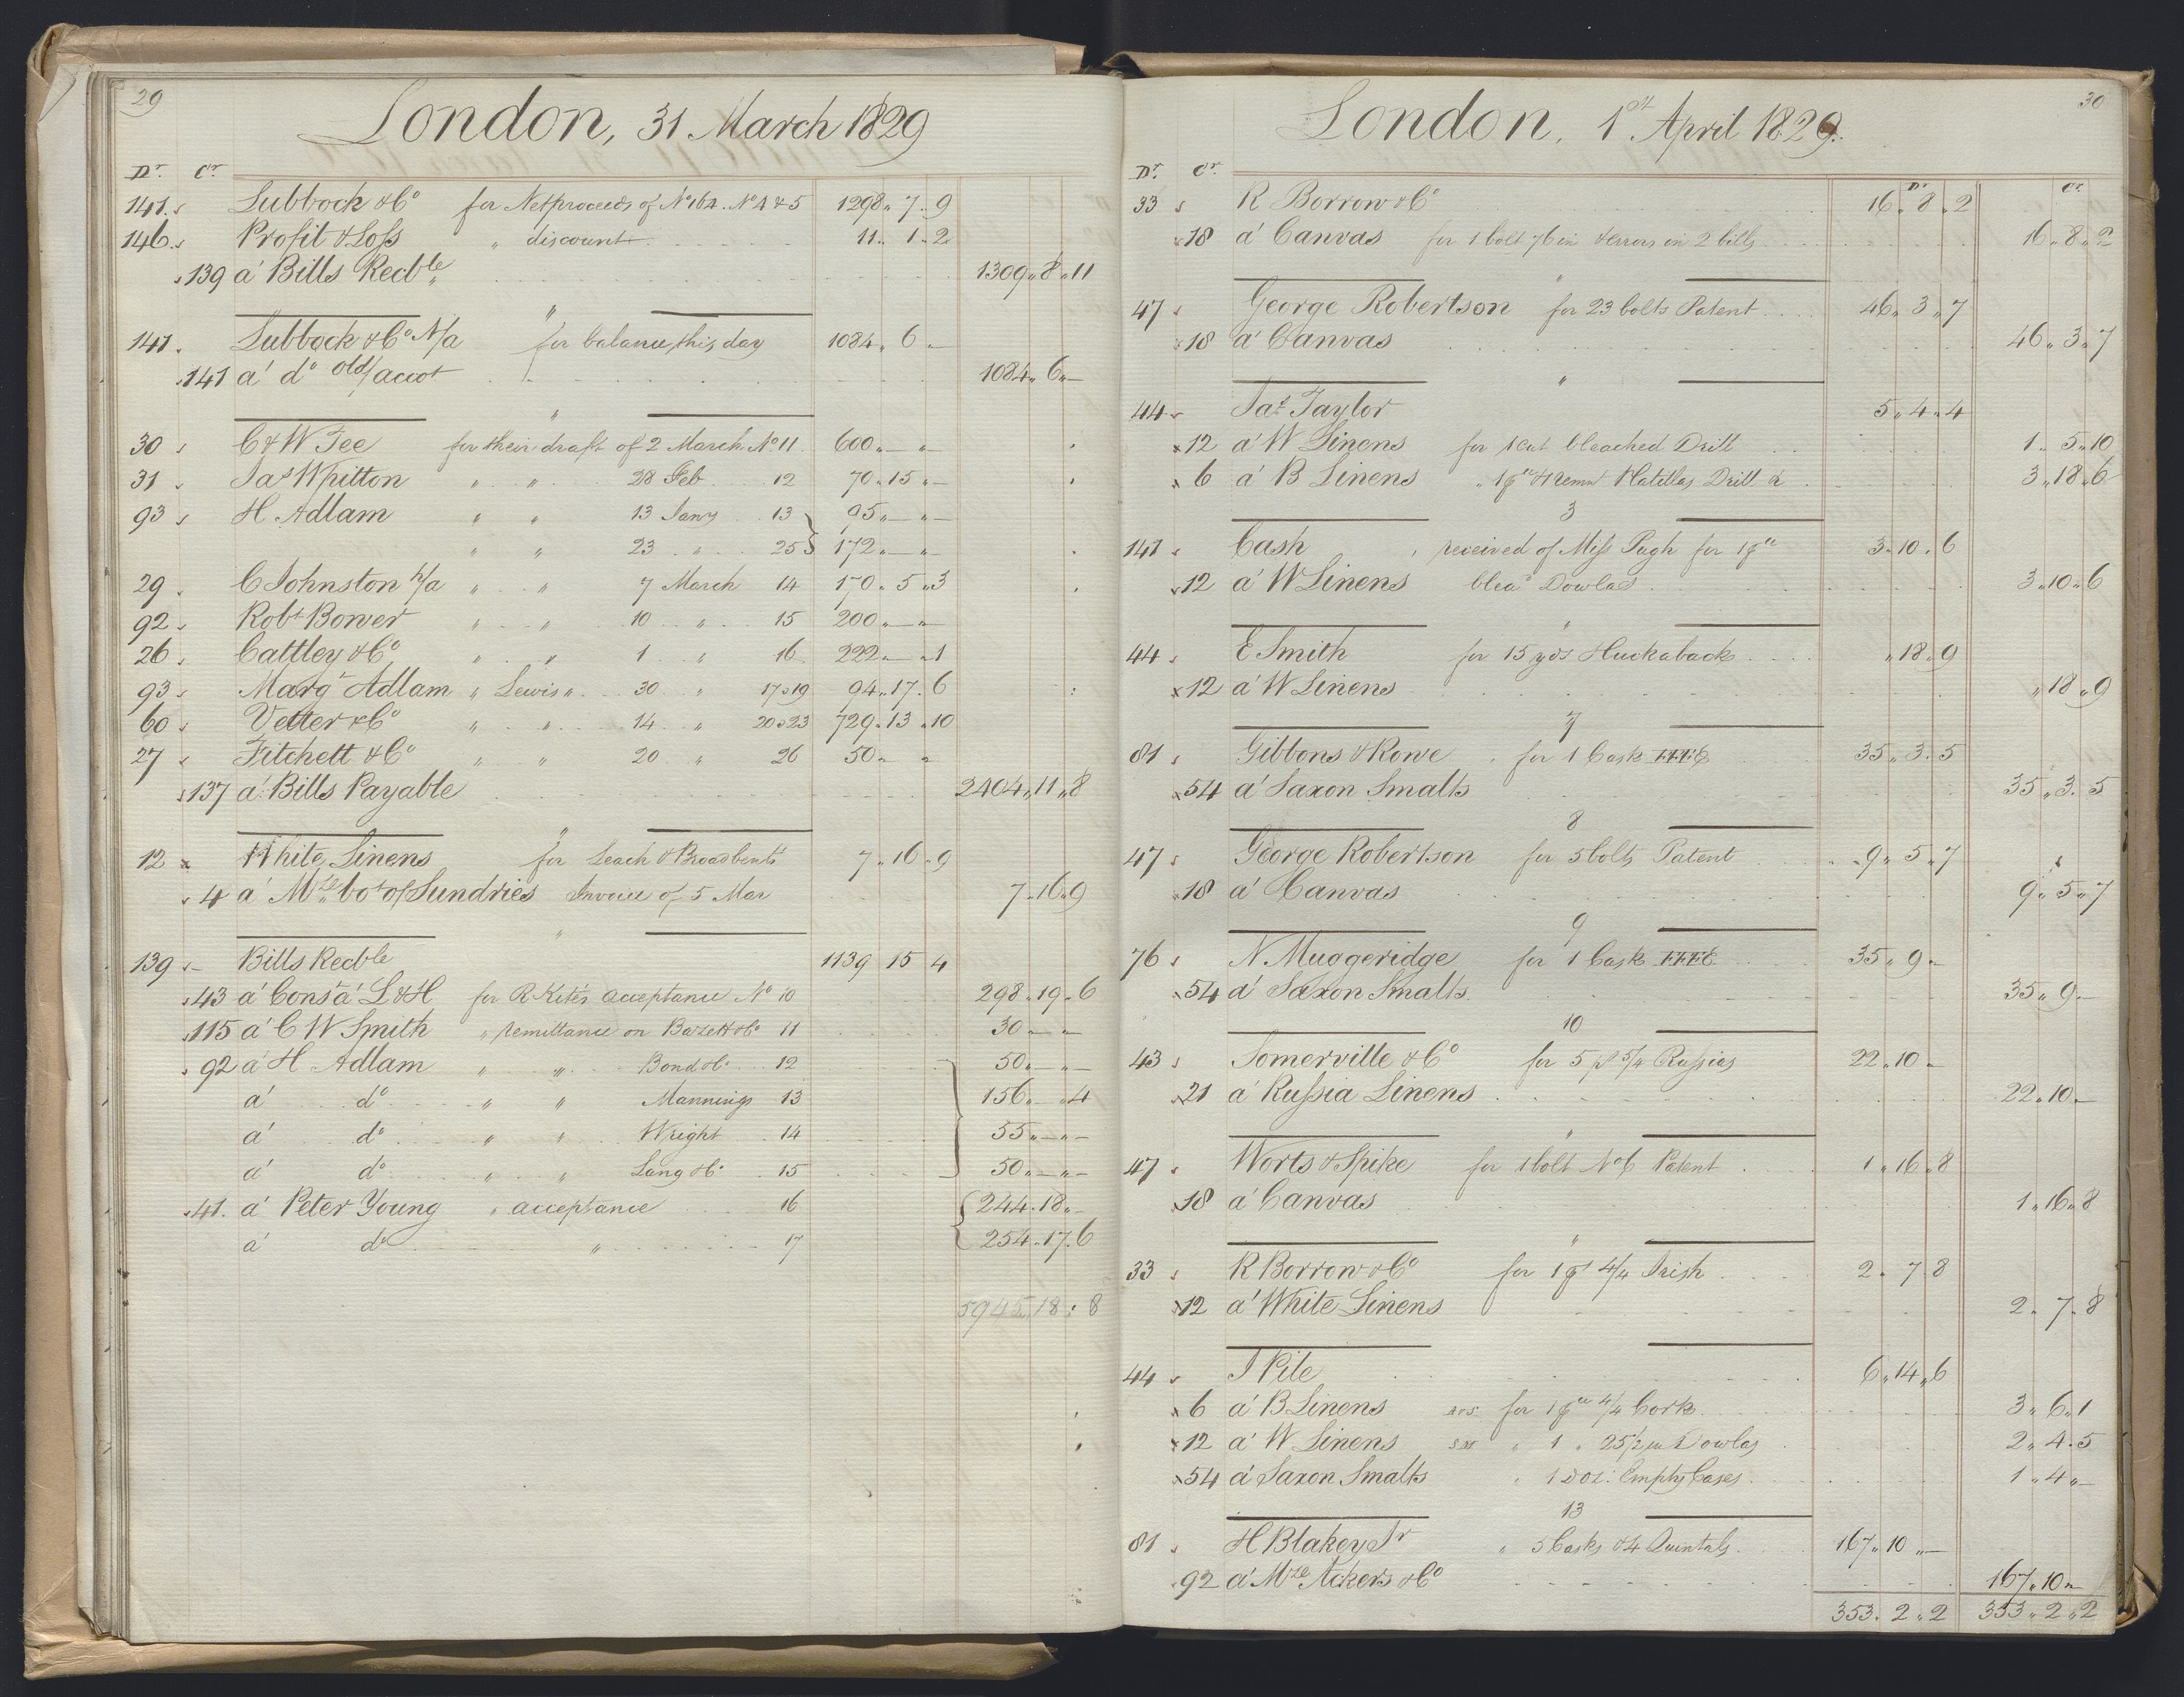 29
London, 31 March 1829
Dr. Cr.
141 Lubbock & Co for Netproceeds of No 164. No 4 & 5 1298 " 7 " 9
146 Profit & Loss " discount 11 " 1 " 2
139 a' Bills Recble 1309 " 8 " 11
"
141 Lubbock & Co N/a for balance this day 1084 " 6 " —
141 a' do old/accot 1084 " 6 " —
"
30 C & W Tee for their draft of 2 March No 11 600 " — " —
31 Jas Whitton " " 28 Feb 12 70 " 15 " —
93 H. Adlam " " 13 Jany 13 95 " — " —
" " 23 " 25 172 " — " —
29 C Johnston n/a " " 7 March 14 170 " 5 " 3
92 Robt Bower " " 10 " 15 200 " — " —
26 Cattley & Co " " 1 " 16 222 " — " 1
93 Margt Adlam " Lewis " 30 " 17 a 19 94 " 17 " 6
60 Vetter & Co " " 14 " 20 a 23 729 " 13 " 10
27 Fitchett & Co " " 20 " 26 50 " "
137 a' Bills Payable 2404 " 11 " 8
"
12 White Linens for Leach & Broadbents 7 " 16 " 9
4 a' Mdze bot of Sundries Invoice of 5 Mar 7 " 16 " 9
"
139 Bills Recble 1139 15 4
43 a' Consr a' L & H for R Kite's acceptance No 10 298 " 19 " 6
115 a' C W Smith " remittance on Bazett & Co 11 30 " — " —
92 a' H Adlam " " Bond & Co 12 50 " — " —
a' do " " Mannings 13 156 " — " 4
a' do " " Wright 14 55 " — " —
a' do " " Lang & Co 15 50 " — " —
41 a' Peter Young " acceptance 16 244 " 18 " —
a' do " 17 254 " 17 " 6
5945 : 18 : 8
30
London, 1st April 1829.
Dr. Cr.
Dr Cr
33 R Borrow & Co 16 " 8 " 2
18 a' Canvas for 1 bolt 76 in & errors in 2 bills 16 " 8 " 2
"
47 George Robertson for 23 bolts Patent 46 " 3 " 7
18 a' Canvas 46 " 3 " 7
"
44 Jas Taylor 5 " 4 " 4
12 a' W Linens for 1 cut bleached Drill 1 " 5 " 10
6 a' B Linens " 1 pce & 1 remnt Platillas Drill & 3 " 18 " 6
3
141 Cash " received of Miss Pugh for 1 pce 3 " 10 " 6
12 a' W Linens blead Dowlas 3 " 10 " 6
"
44 E Smith for 15 yds Huckaback " 18 " 9
12 a' W Linens " 18 " 9
7
81 Gibbons & Rowe " for 1 Cask FFFE 35 " 3 " 5
54 a' Saxon Smalts 35 " 3 " 5
8
47 George Robertson for 5 bolts Patent 9 " 5 " 7
18 a' Canvas 9 " 5 " 7
9
76 N Muggeridge for 1 Cask FFFE 35 " 9 " —
54 a' Saxon Smalts 35 " 9 " —
10
43 Somerville & Co for 5 ps 5/4 Russias 22 " 10 —
21 a' Russia Linens 22 " 10 —
"
47 Worts & Spike for 1 bolt No 6 Patent 1 " 16 " 8
18 a' Canvas 1 " 16 " 8
"
33 R Borrow & Co for 1 ps 4/4 Irish 2 " 7 " 8
12 a' White Linens 2 " 7 " 8
44 J Pile 6 " 14 " 6
6 a' B Linens for 1 pce 4/4 Cork 3 " 6 " 1
12 a' W Linens " 1 " 25 1/2 in Dowlas 2 " 4 " 5
54 a' Saxon Smalts " 1 doz: Empty Cases 1 " 4 " —
13
81 H Blakey Jr " 5 Casks & 4 Quintals 167 " 10 " —
92 a' Mdze Ackers & Co 167 " 10 " —
353 " 2 " 2 353 " 2 " 2